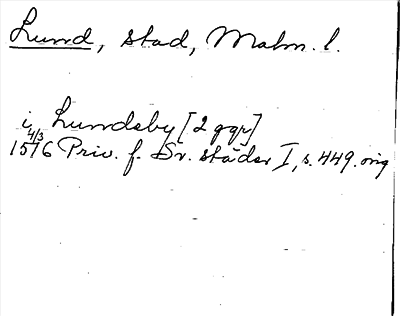 Lund, stad, Malm. l.
i Lundsby [2 ggr]
4/3
1576 Priv. f. Sv. städer I, s. 449. orig